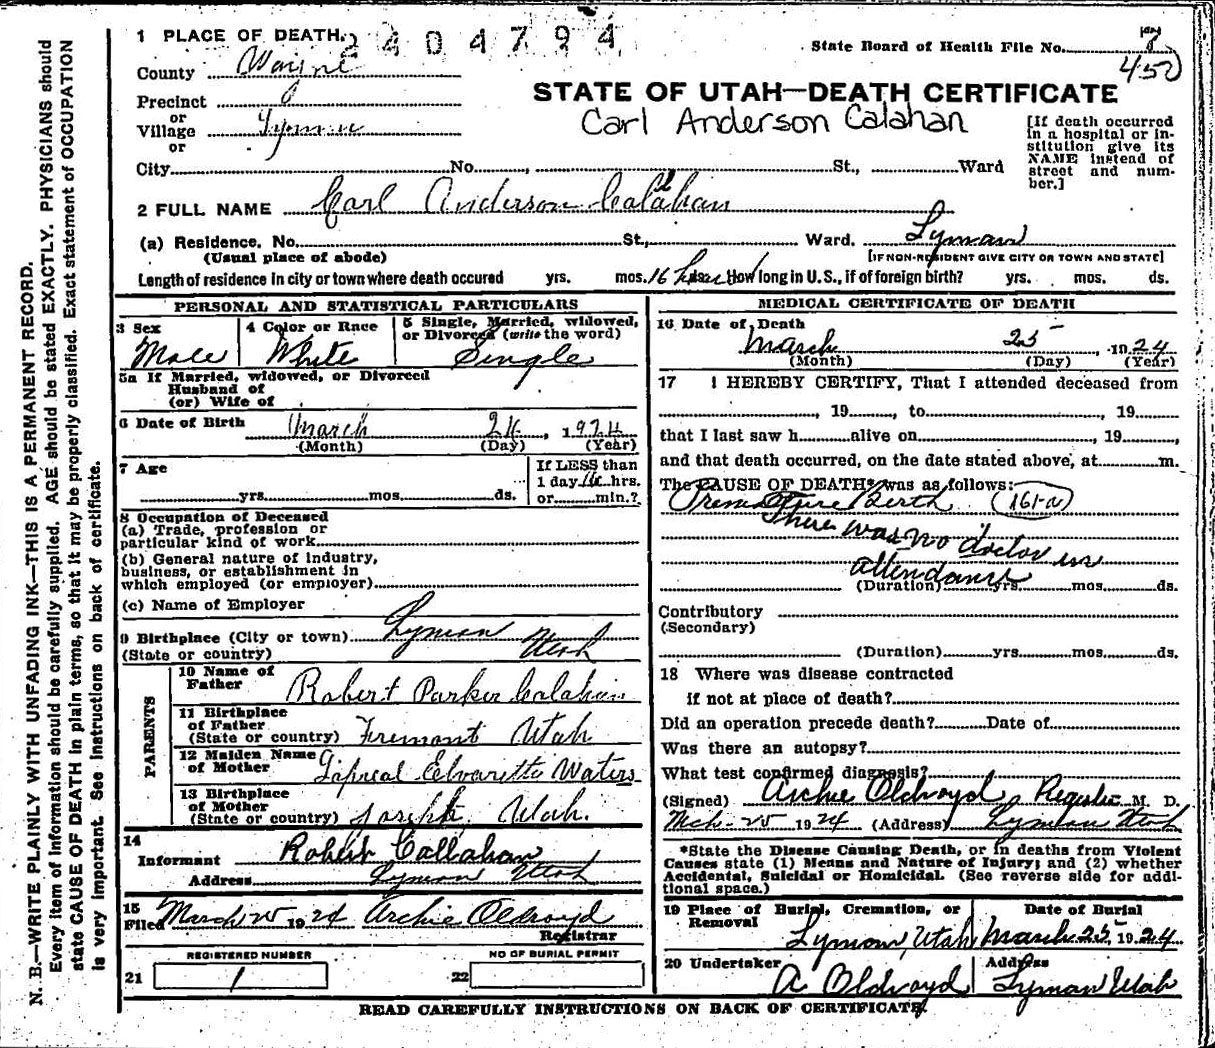 1 PLACE OF DEATH.
2404794
State Board of Health File No. 7
450
County Wayne
STATE OF UTAH—DEATH CERTIFICATE
Precinct
or
Village Lyman
or
Carl Anderson Calahan
[If death occurred
in a hospital or in-
stitution give its
NAME instead of
street and num-
ber.]
City No. St., Ward
2 FULL NAME Carl Anderson Calahan
(a) Residence. No. St., Ward. Lyman
(Usual place of abode) [IF NON-RESIDENT GIVE CITY OR TOWN AND STATE]
Length of residence in city or town where death occured yrs. mos. 16 ds. How long in U.S., if of foreign birth? yrs. mos. ds.
PERSONAL AND STATISTICAL PARTICULARS
3 Sex
Male
4 Color or Race
White
5 Single, Married, widowed,
or Divorced (write the word)
Single
5a If Married, widowed, or Divorced
Husband of
(or) Wife of
6 Date of Birth March 24, 1924
(Month) (Day) (Year)
7 Age
yrs. mos. ds.
If LESS than
1 day 16 hrs.
or min.?
8 Occupation of Deceased
(a) Trade, profession or
particular kind of work
(b) General nature of industry,
business, or establishment in
which employed (or employer)
(c) Name of Employer
9 Birthplace (City or town) Lyman
(State or country) Utah
PARENTS
10 Name of
Father Robert Parker Calahan
11 Birthplace
of Father
(State or country) Fremont Utah
12 Maiden Name
of Mother Elvaretta Waters
13 Birthplace
of Mother
(State or country) Joseph, Utah.
14
Informant Robert Callahan
Address Lyman Utah
15
Filed March 25 1924 Archie Oldroyd
Registrar
REGISTERED NUMBER
21 1
NO OF BURIAL PERMIT
22
MEDICAL CERTIFICATE OF DEATH
16 Date of Death
March 25, 1924
(Month) (Day) (Year)
17 I HEREBY CERTIFY, That I attended deceased from
, 19, to, 19
that I last saw h alive on, 19,
and that death occurred, on the date stated above, at m.
The CAUSE OF DEATH* was as follows:
Premature Birth (161-a)
There was no doctor in
attendance
(Duration) yrs. mos. ds.
Contributory
(Secondary)
(Duration) yrs. mos. ds.
18 Where was disease contracted
if not at place of death?
Did an operation precede death? Date of
Was there an autopsy?
What test confirmed diagnosis?
(Signed) Archie Oldroyd Register M. D.
Mch. 25 1924 (Address) Lyman Utah
*State the Disease Causing Death, or in deaths from Violent
Causes state (1) Means and Nature of Injury; and (2) whether
Accidental, Suicidal or Homicidal. (See reverse side for addi-
tional space.)
19 Place of Burial, Cremation, or
Removal
Lyman, Utah
Date of Burial
March 25, 1924
20 Undertaker
A Oldroyd
Address
Lyman Utah
READ CAREFULLY INSTRUCTIONS ON BACK OF CERTIFICATE.
N. B.—WRITE PLAINLY WITH UNFADING INK—THIS IS A PERMANENT RECORD.
Every item of information should be carefully supplied. AGE should be stated EXACTLY. PHYSICIANS should
state CAUSE OF DEATH in plain terms, so that it may be properly classified. Exact statement of OCCUPATION
is very important. See instructions on back of certificate.